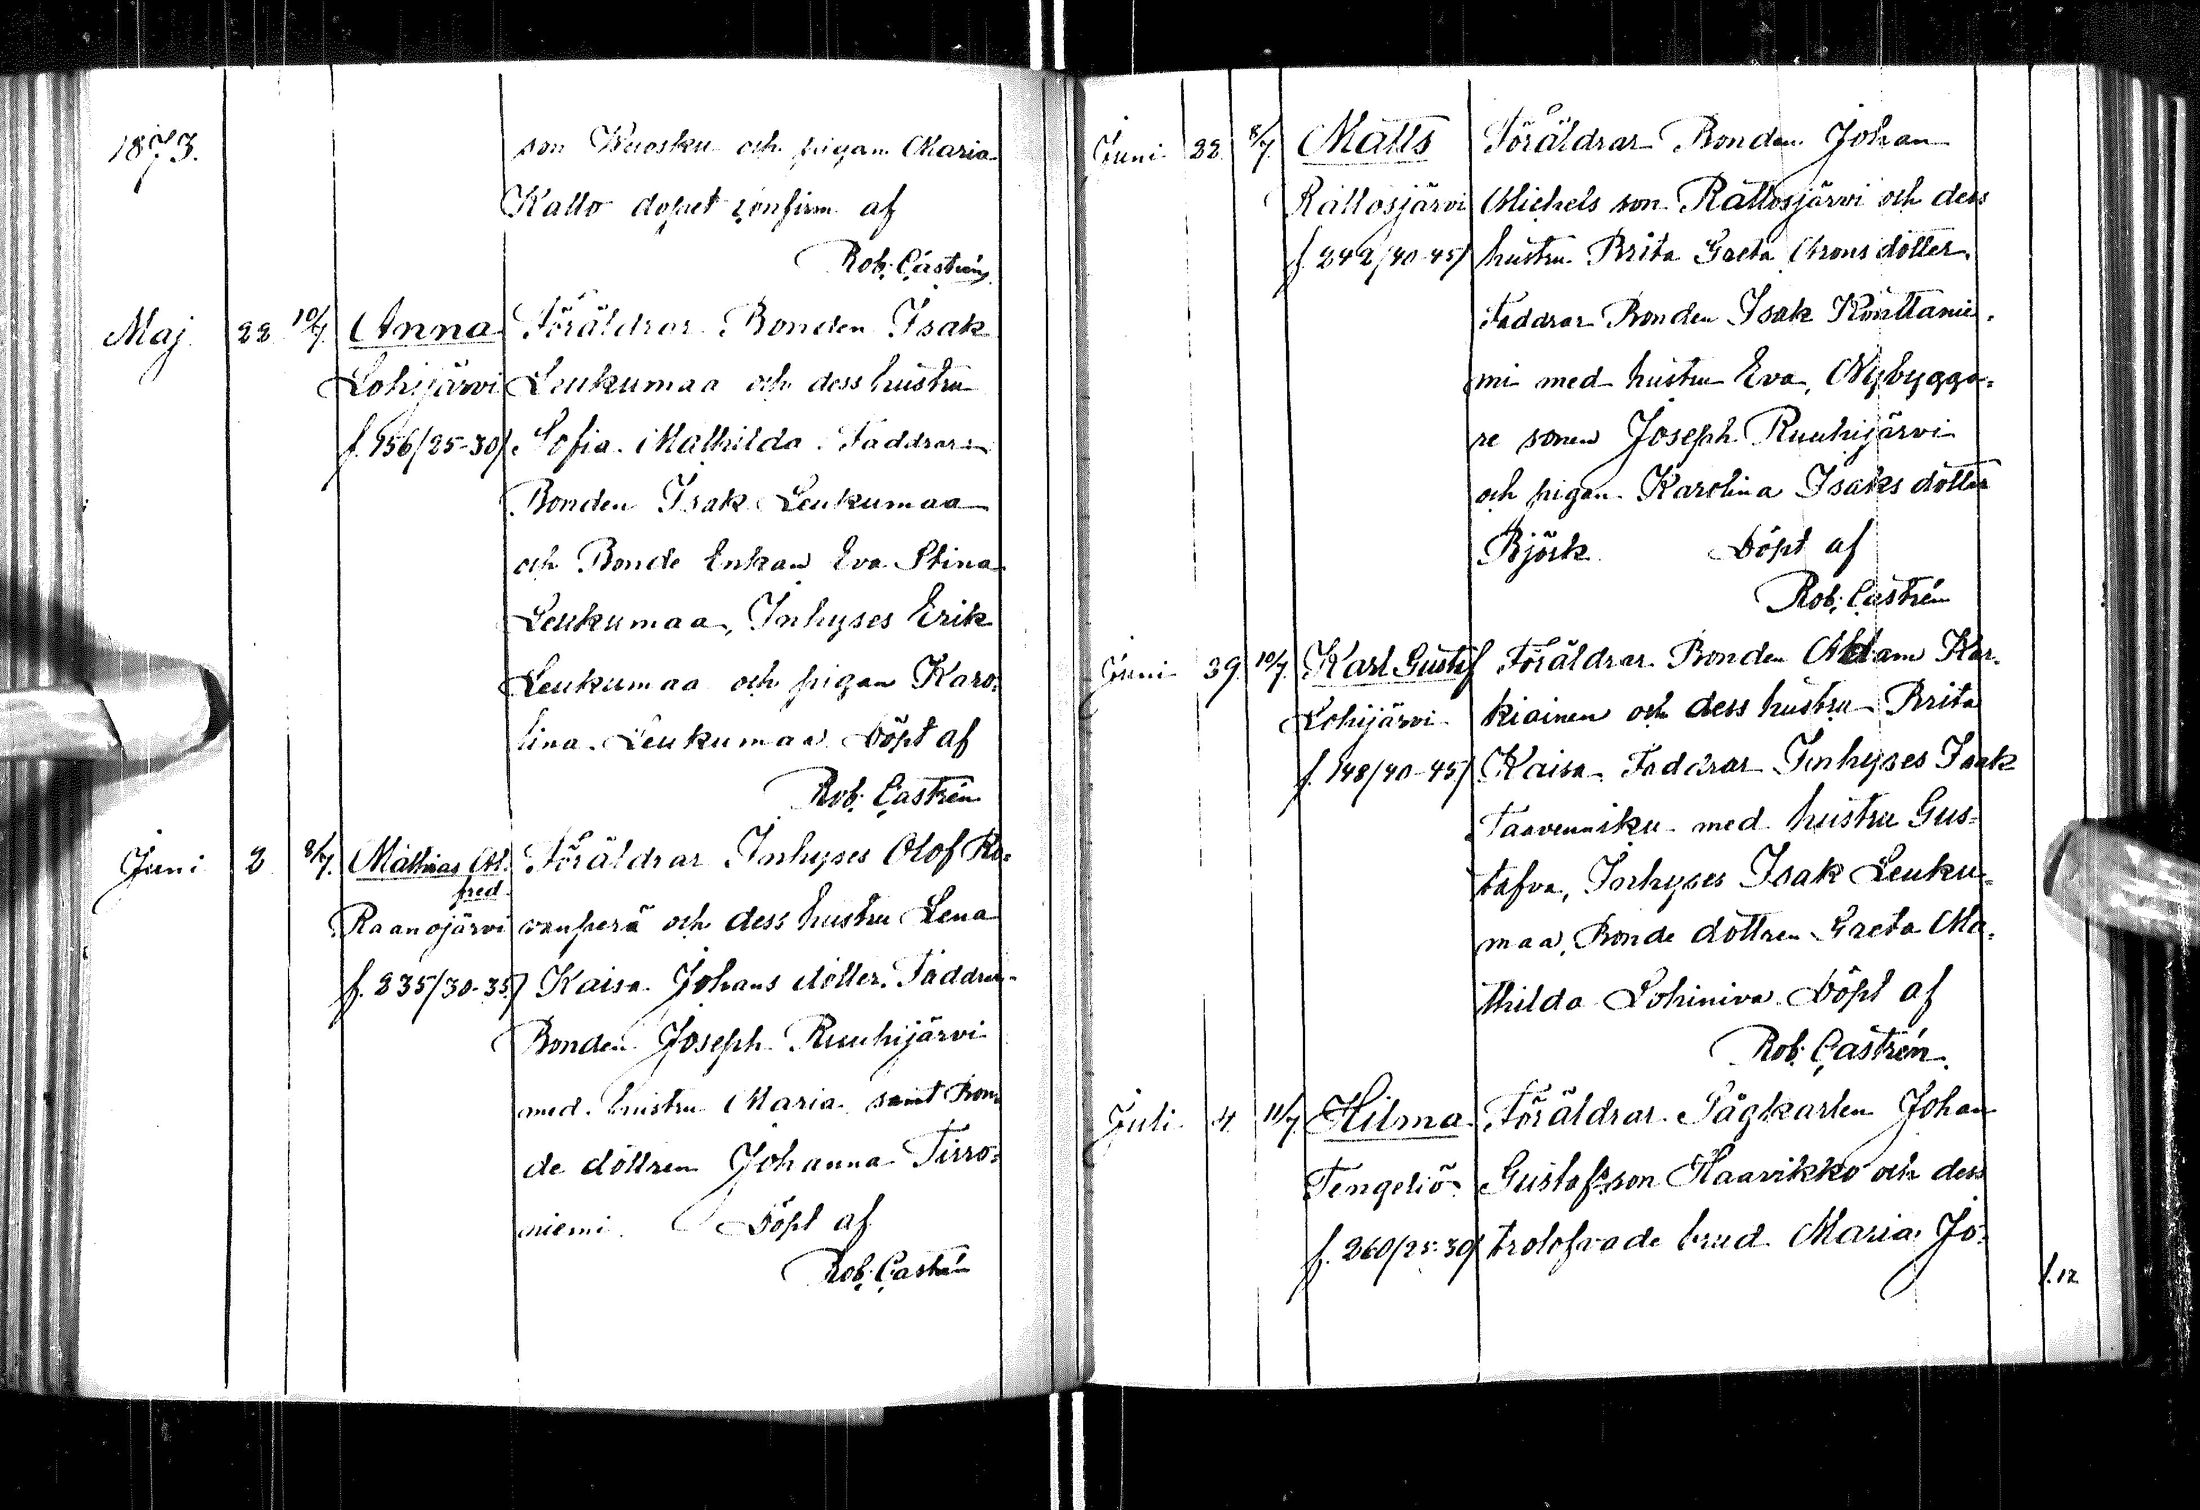 1873.
son Kuosku och pigan Maria
Kallo dopet konfirm af
Rob. Castrén
Maj 22 10/7 Anna Föräldrar Bonden Isak
Lohijärvi Leukumaa och dess hustru
f. 156/25-30/ Sofia Mathilda. Faddrar
Bonden Isak Leukumaa
och Bonde Enkan Eva Stina
Leukumaa, Inhyses Erik
Leukumaa och pigan Karo=
lina Leukumaa Döpt af
Rob. Castrén
Juni 2 8/7. Mathias Al=
fred Föräldrar Inhyses Olof Ro=
Raanojärvi vanperä och dess hustru Lena
f. 235/30-35/ Kaisa Johans dotter. Faddrar
Bonden Joseph Ruuhijärvi
med hustru Maria samt Bon=
de dottren Johanna Tirro=
niemi. Döpt af
Rob. Castrén
Juni 22 8/7. Matts Föräldrar Bonden Johan
Rattosjärvi Michels son Rattosjärvi och dess
f. 242/40-45/ hustru Brita Greta Arons dotter.
Faddrar Bonden Isak Konttanie=
mi med hustru Eva, Nybygga=
re sonen Joseph Ruuhijärvi
och pigan Karolina Isaks dotter
Björk Döpt af
Rob. Castrén
Juni 29 10/7. Karl Gustaf Föräldrar Bonden Adam Kar=
Lohijärvi kiainen och dess hustru Brita
f. 148/40-45/ Kaisa. Faddrar Inhyses Isak
Taavenniku med hustru Gus=
tafva, Inhyses Isak Leuku=
maa, Bonde dottren Greta Ma=
thilda Lohiniva Döpt af
Rob. Castrén.
Juli 4 11/7. Hilma Föräldrar Sågkarlen Johan
Tengeliö Gustafsson Haavikko och dess
f. 260/25-30/ trolofvade brud Maria Jo=
f. 12